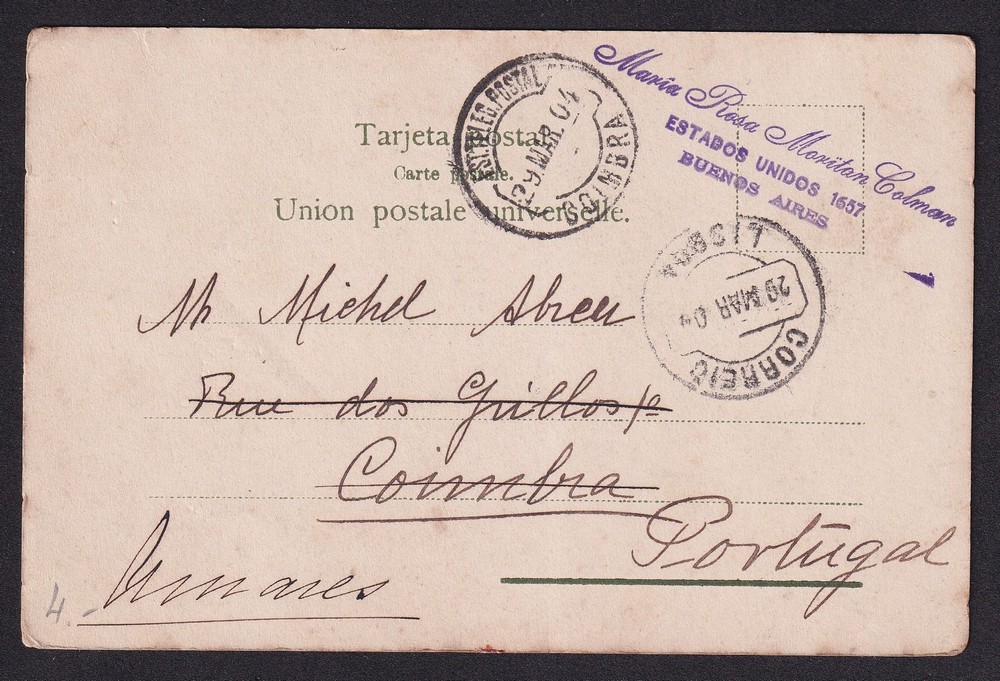 Maria Rosa Moritan Colman
ESTADOS UNIDOS 1657
BUENOS AIRES
EST. TELEG. POSTAL
29 MAR. 04
COIMBRA
Tarjeta postal
Carte postale.
Union postale universelle.
LISBOA
29 MAR 04
CORREIO
Mr Michel Abreu
Rue dos Grillos
Coimbra
Portugal
4.-